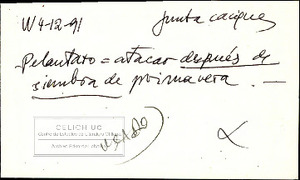 W 4-12-91
junta caciques
Pelantaro = atacar después de
siembra de primavera. —
usado
CELICH UC